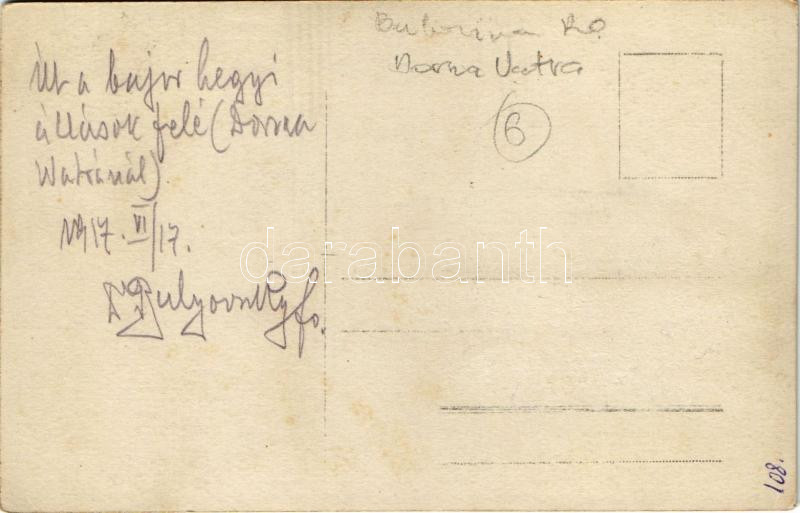 Út a bajor hegyi
állások felé (Dorna
Watránál)
1917. VI/17.
Bukovina Ro.
Dorna Vatra
6
darabanth
108.